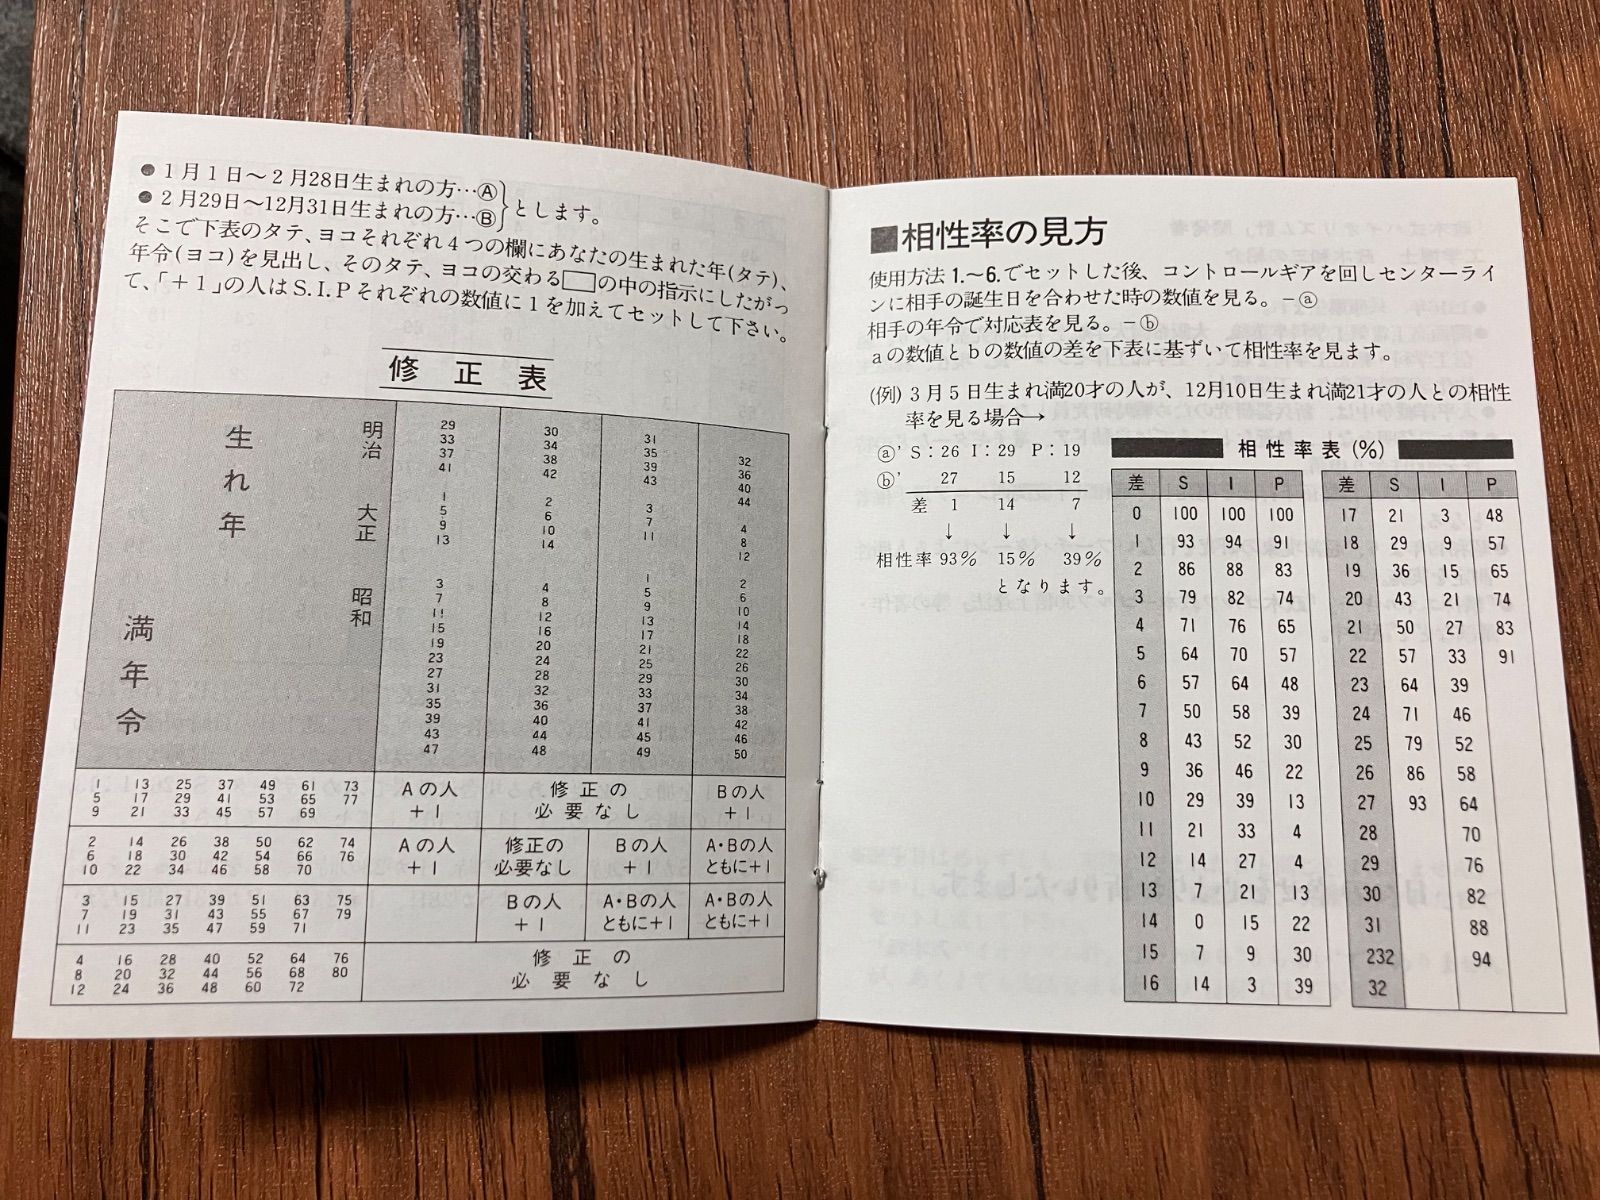 ●1月1日～2月28日生まれの方…Ⓐ
●2月29日～12月31日生まれの方…Ⓑ}とします。
そこで下表のタテ、ヨコそれぞれ4つの欄にあなたの生まれた年(タテ)、
年令(ヨコ)を見出し、そのタテ、ヨコの交わる□の中の指示にしたがっ
て、「＋1」の人はS.I.Pそれぞれの数値に1を加えてセットして下さい。
修正表
生れ年
満年令
明治
29 30 31 32
33 34 35 36
37 38 39 40
41 42 43 44
大正
1 2 3 4
5 6 7 8
9 10 11 12
13 14
昭和
3 4 1 2
7 8 5 6
11 12 9 10
15 16 13 14
19 20 17 18
23 24 21 22
27 28 25 26
31 32 29 30
35 36 33 34
39 40 37 38
43 44 41 42
47 48 45 46
49 50
1 13 25 37 49 61 73
5 17 29 41 53 65 77
9 21 33 45 57 69
Aの人
＋1
修正の
必要なし
Bの人
＋1
2 14 26 38 50 62 74
6 18 30 42 54 66 76
10 22 34 46 58 70
Aの人
＋1
修正の
必要なし
Bの人
＋1
A・Bの人
ともに＋1
3 15 27 39 51 63 75
7 19 31 43 55 67 79
11 23 35 47 59 71
Bの人
＋1
A・Bの人
ともに＋1
A・Bの人
ともに＋1
4 16 28 40 52 64 76
8 20 32 44 56 68 80
12 24 36 48 60 72
修正の
必要なし
■相性率の見方
使用方法1.～6.でセットした後、コントロールギアを回しセンターライ
ンに相手の誕生日を合わせた時の数値を見る。－ⓐ
相手の年令で対応表を見る。－ⓑ
aの数値とbの数値の差を下表に基ずいて相性率を見ます。
(例) 3月5日生まれ満20才の人が、12月10日生まれ満21才の人との相性
率を見る場合→
ⓐ' S：26 I：29 P：19
ⓑ' 27 15 12
差 1 14 7
↓ ↓ ↓
相性率 93% 15% 39%
となります。
相性率表(%)
差 S I P 差 S I P
0 100 100 100 17 21 3 48
1 93 94 91 18 29 9 57
2 86 88 83 19 36 15 65
3 79 82 74 20 43 21 74
4 71 76 65 21 50 27 83
5 64 70 57 22 57 33 91
6 57 64 48 23 64 39
7 50 58 39 24 71 46
8 43 52 30 25 79 52
9 36 46 22 26 86 58
10 29 39 13 27 93 64
11 21 33 4 28 70
12 14 27 4 29 76
13 7 21 13 30 82
14 0 15 22 31 88
15 7 9 30 232 94
16 14 3 39 32